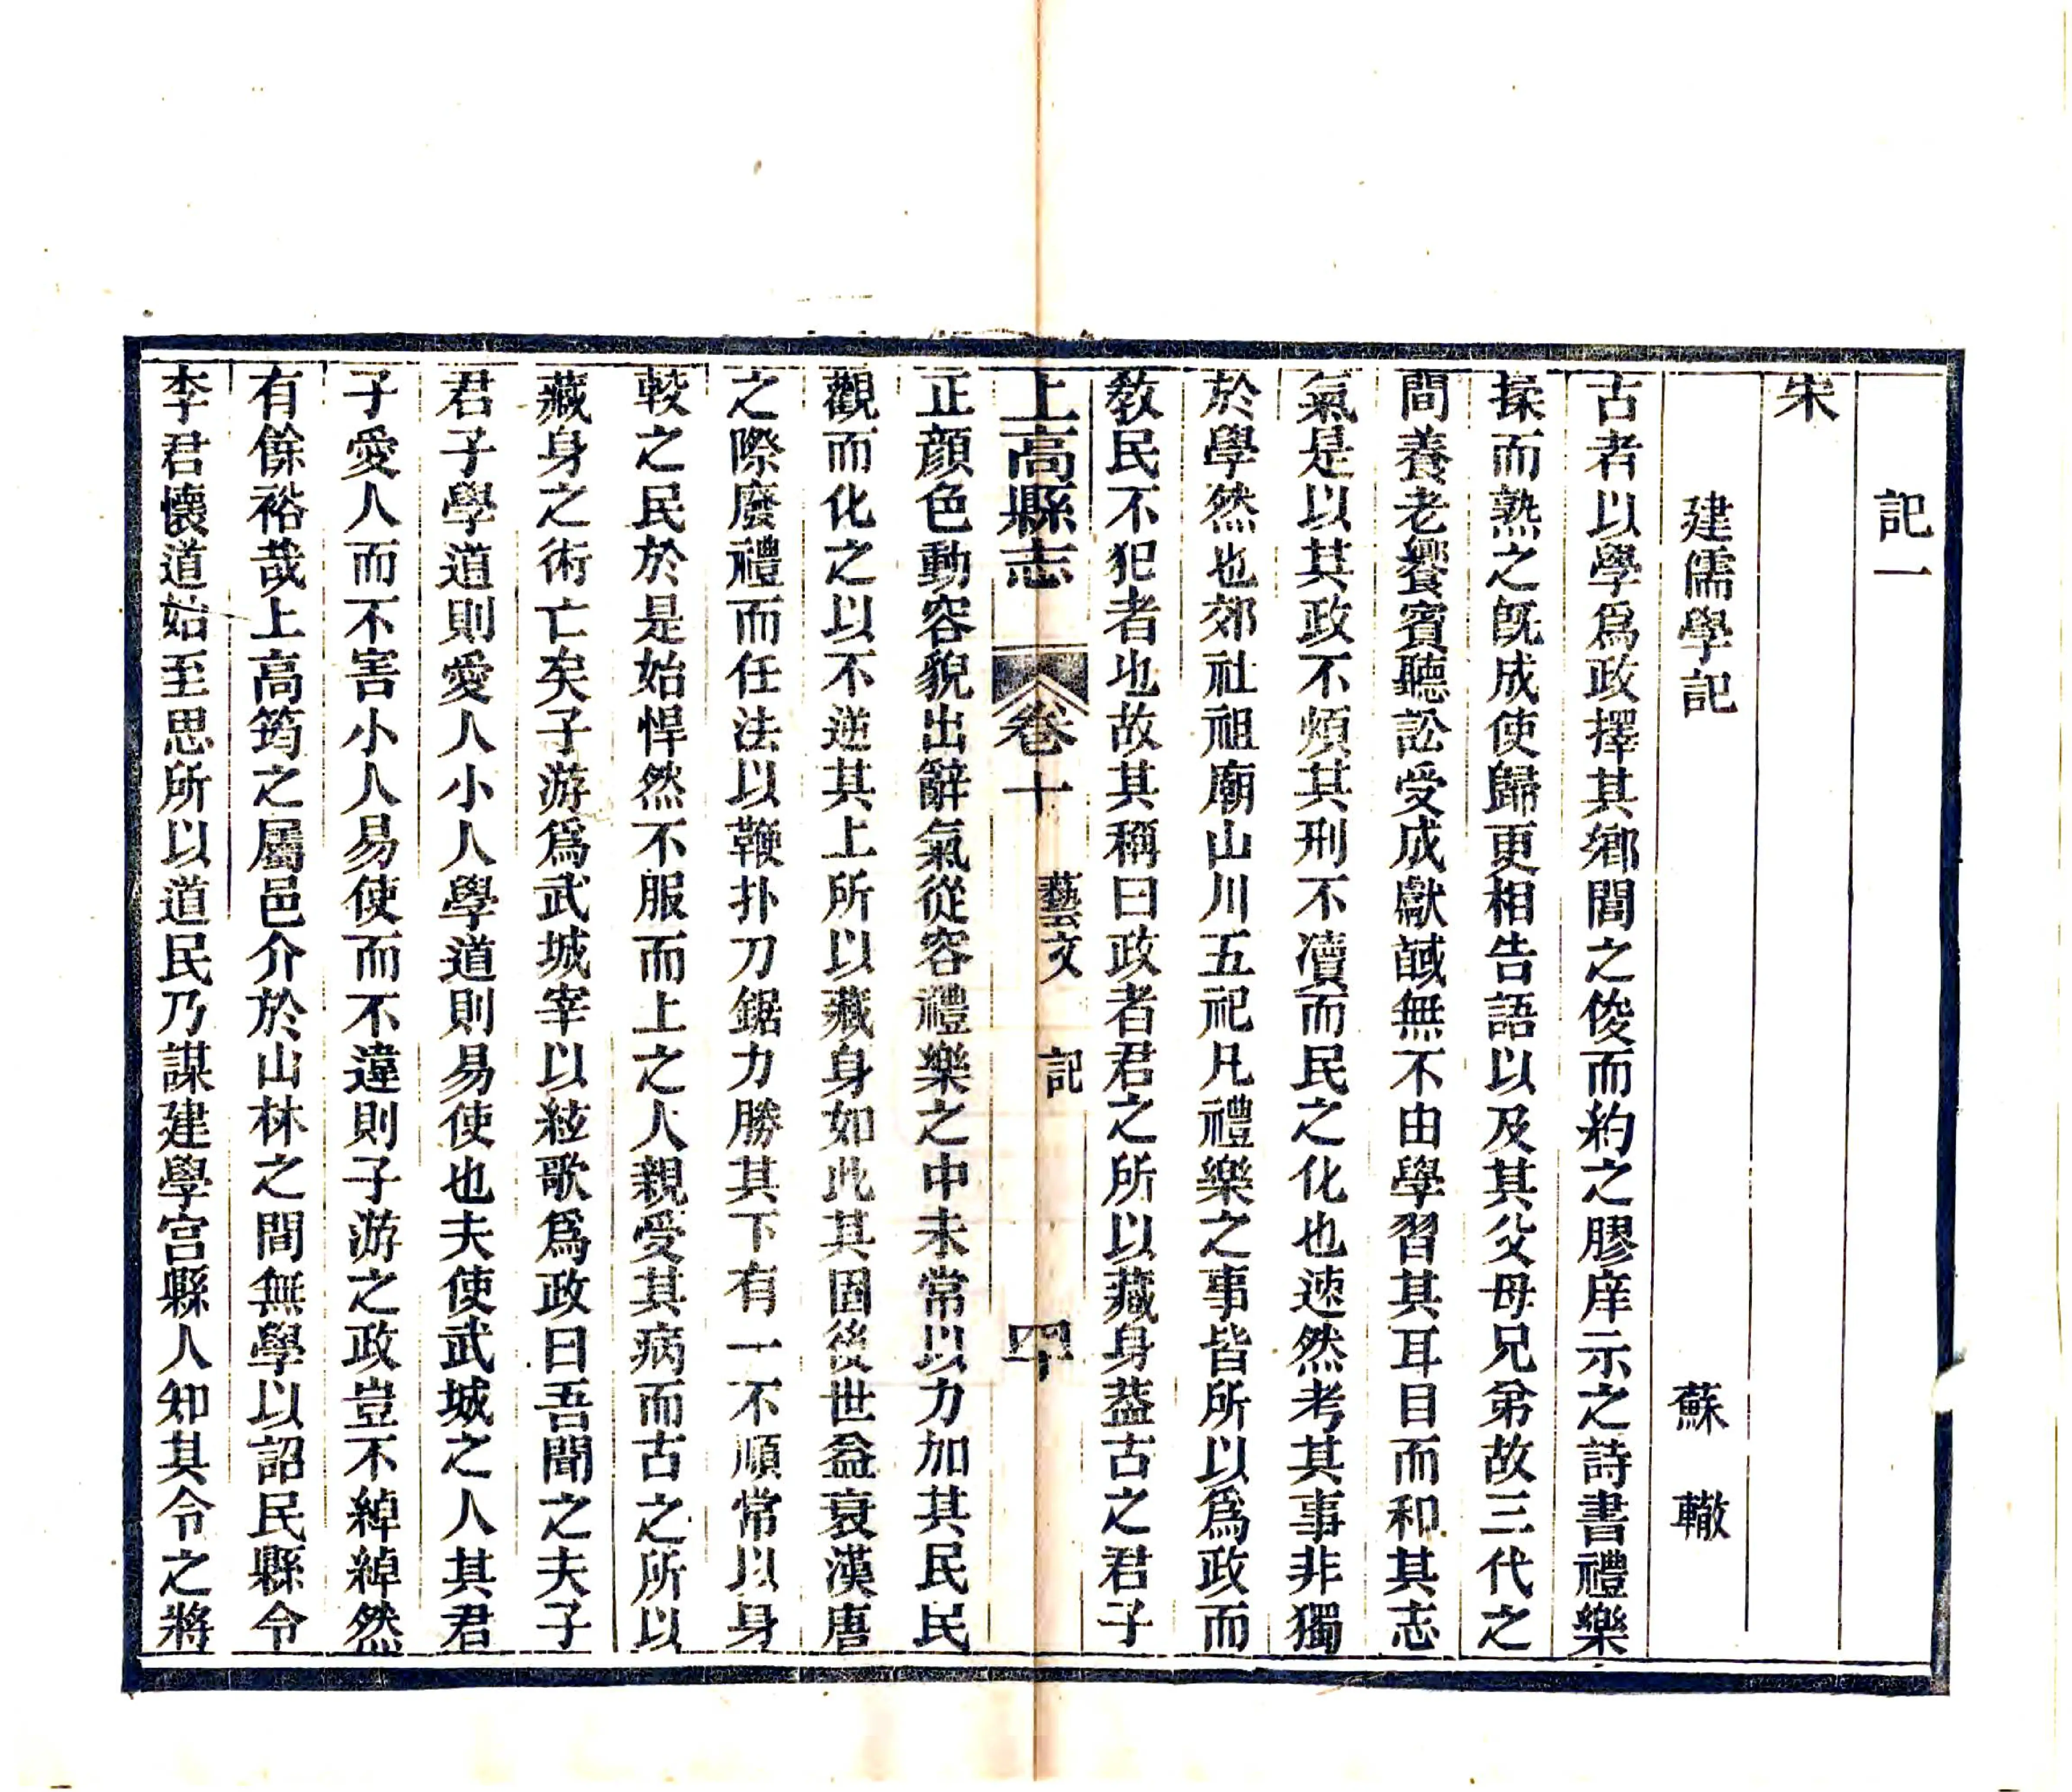 記一
宋
建儒學記 蘇轍
古者以學爲政擇其鄉閭之俊而約之膠庠示之詩書禮樂
揉而熟之旣成使歸更相告語以及其父母兄弟故三代之
間養老饗賓聽訟受成獻馘無不由學習其耳目而和其志
氣是以其政不煩其刑不凟而民之化也速然考其事非獨
於學然也郊社祖廟山川五祀凡禮樂之事皆所以爲政而
敎民不犯者也故其稱曰政者君之所以藏身葢古之君子
上高縣志 卷十 藝文 記 四十
正顏色動容貌出辭氣從容禮樂之中未常以力加其民民
觀而化之以不逆其上所以藏身如此其固後世益衰漢唐
之際廢禮而任法以鞭扑刀鋸力勝其下有一不順常以身
較之民於是始悍然不服而上之人親受其病而古之所以
藏身之術亡矣子游爲武城宰以絃歌爲政曰吾聞之夫子
君子學道則愛人小人學道則易使也夫使武城之人其君
子愛人而不害小人易使而不違則子游之政豈不綽綽然
有餘裕哉上高筠之屬邑介於山林之間無學以詔民縣令
李君懷道始至思所以道民乃謀建學宫縣人知其令之將